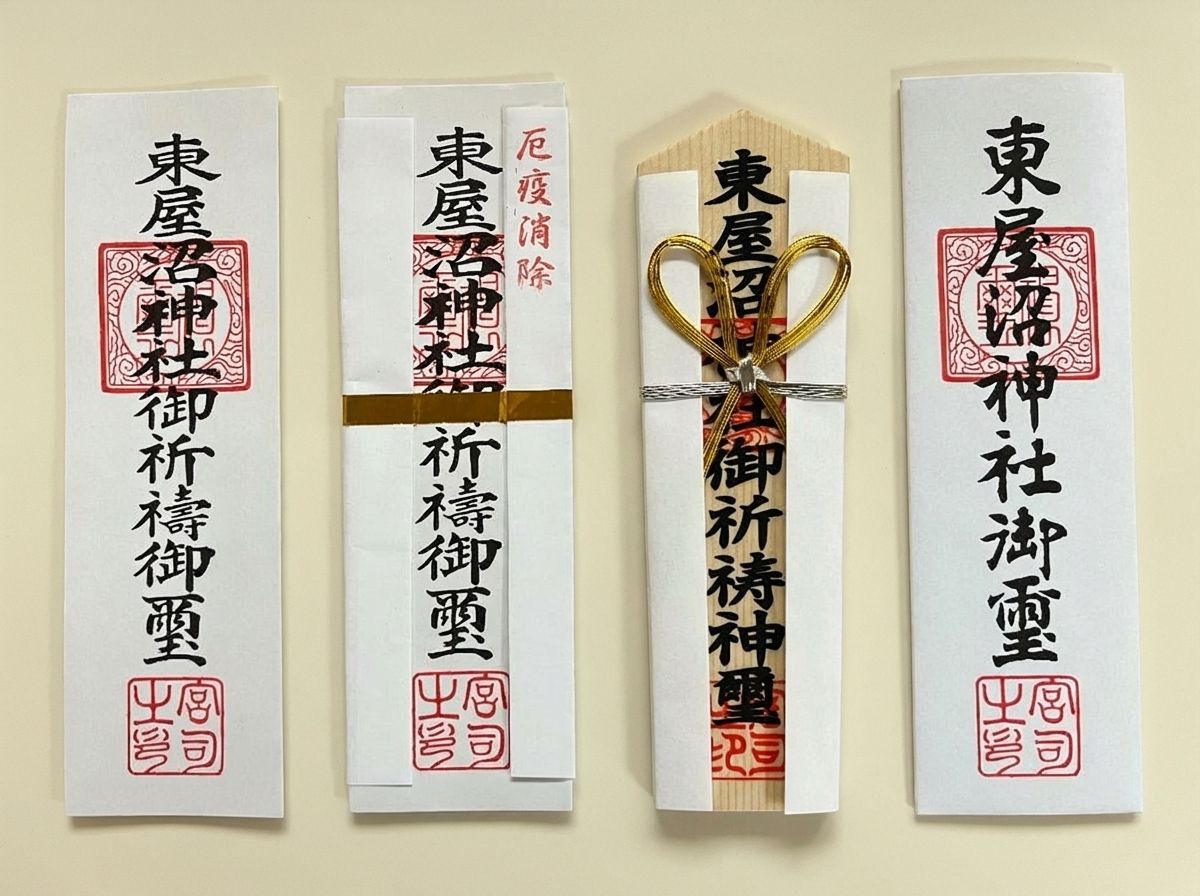 東屋沼神社御祈禱御璽
宮司之印
厄疫消除
東屋沼神社御祈禱御璽
宮司之印
東屋沼神社御祈祷神璽
東屋沼神社御璽
宮司之印